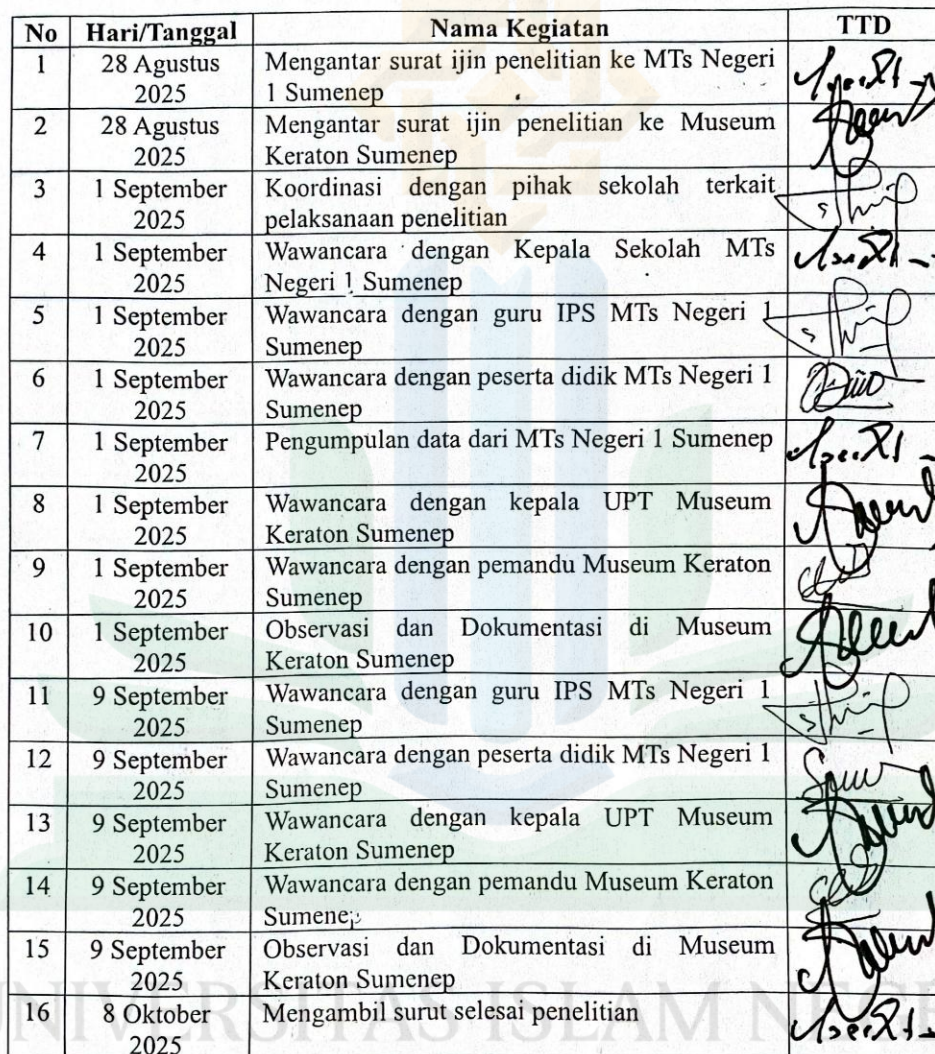 No Hari/Tanggal Nama Kegiatan TTD
1 28 Agustus Mengantar surat ijin penelitian ke MTs Negeri
2025 1 Sumenep
2 28 Agustus Mengantar surat ijin penelitian ke Museum
2025 Keraton Sumenep
3 1 September Koordinasi dengan pihak sekolah terkait
2025 pelaksanaan penelitian
4 1 September Wawancara dengan Kepala Sekolah MTs
2025 Negeri 1 Sumenep
5 1 September Wawancara dengan guru IPS MTs Negeri 1
2025 Sumenep
6 1 September Wawancara dengan peserta didik MTs Negeri 1
2025 Sumenep
7 1 September Pengumpulan data dari MTs Negeri 1 Sumenep
2025
8 1 September Wawancara dengan kepala UPT Museum
2025 Keraton Sumenep
9 1 September Wawancara dengan pemandu Museum Keraton
2025 Sumenep
10 1 September Observasi dan Dokumentasi di Museum
2025 Keraton Sumenep
11 9 September Wawancara dengan guru IPS MTs Negeri 1
2025 Sumenep
12 9 September Wawancara dengan peserta didik MTs Negeri 1
2025 Sumenep
13 9 September Wawancara dengan kepala UPT Museum
2025 Keraton Sumenep
14 9 September Wawancara dengan pemandu Museum Keraton
2025 Sumenep
15 9 September Observasi dan Dokumentasi di Museum
2025 Keraton Sumenep
16 8 Oktober Mengambil surut selesai penelitian
2025
UNIVERSITAS ISLAM NEGE